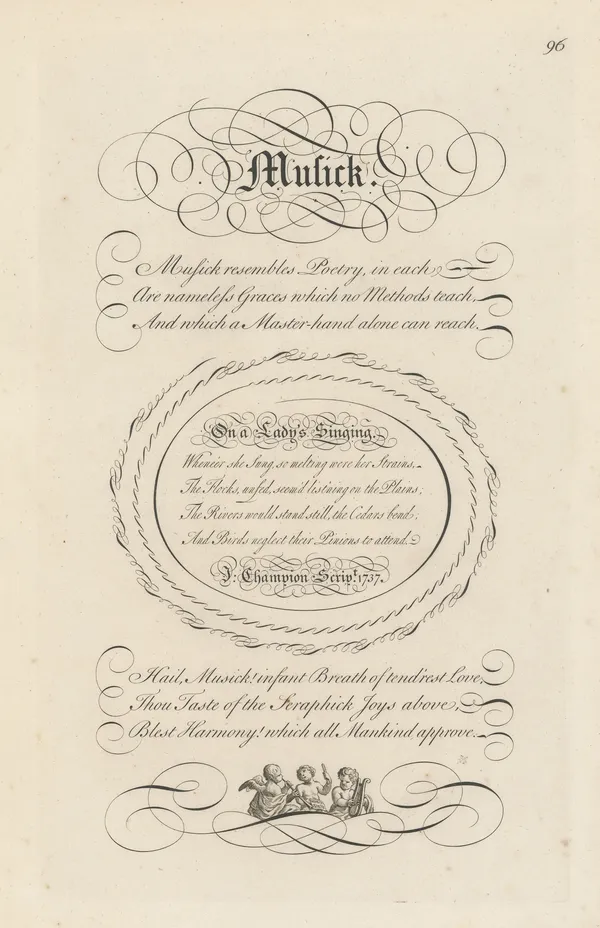 96
Musick.
Musick resembles Poetry, in each
Are nameless Graces which no Methods teach,
And which a Master-hand alone can reach.
On a Lady's Singing.
Whene'er she Sung, so melting were her Strains,
The Flocks, unfed, seem'd list'ning on the Plains;
The Rivers would stand still, the Cedars bend,
And Birds neglect their Pinions to attend.
J: Champion Scrip.t 1737.
Hail, Musick! infant Breath of tend'rest Love,
Thou Taste of the Seraphick Joys above,
Blest Harmony! which all Mankind approve.